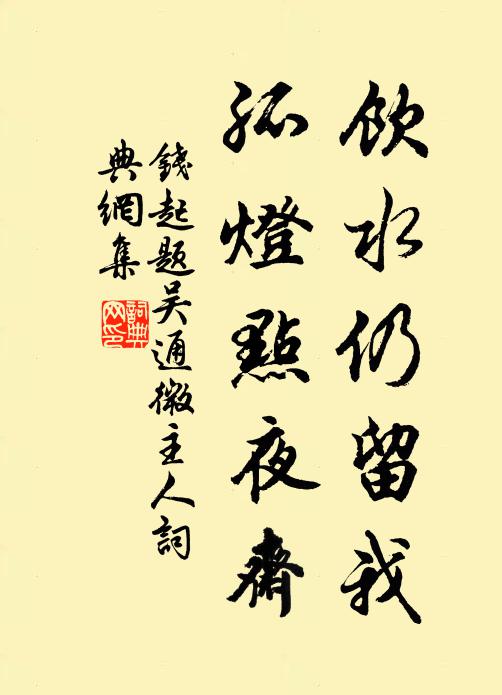 飲水仍留我
孤燈點夜齋
錢起題吴通微主人詞
典網集
詞典網印